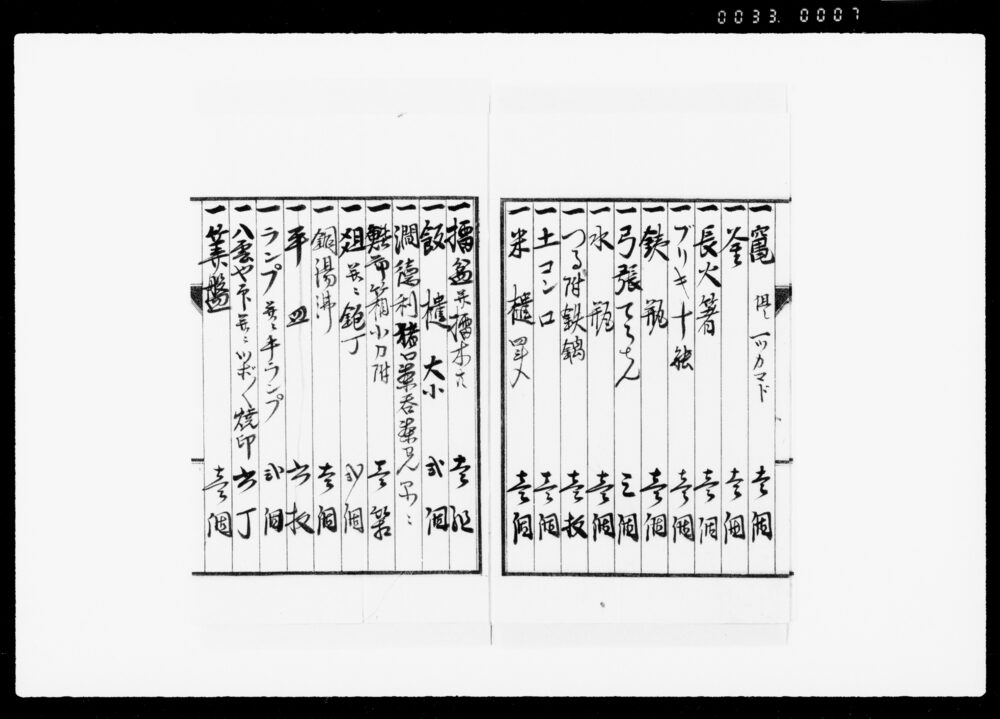 0033. 0007
一竃 但シ一ツカマド 壱個
一釜 壱個
一長火箸 壱個
一ブリキ十能 壱個
一鉄瓶 壱個
一弓張てうちん 三個
一水瓶 壱個
一つる附鉄鍋 壱枚
一土コンロ 壱個
一米櫃 四斗入 壱個
一擂盆并擂木共 壱組
一飯櫃 大小 弐個
一燗徳利猪口
一鰹節箱小刀附 壱
一俎并ニ鉋丁 弐個
一銅湯沸 壱個
一平皿 六枚
一ランプ并ニ手ランプ 弐個
一八雲や下并ニツボ〱焼印 六丁
一算盤 壱個